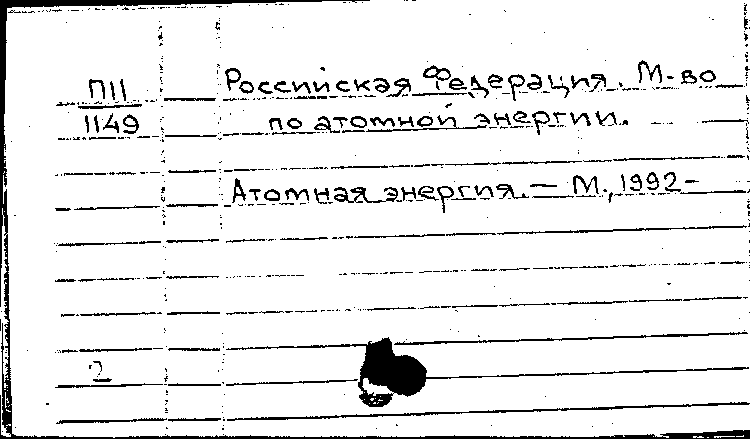 П11
1149
Российская Федерация. М-во
по атомной энергии.
Атомная энергия. — М., 1992-
2